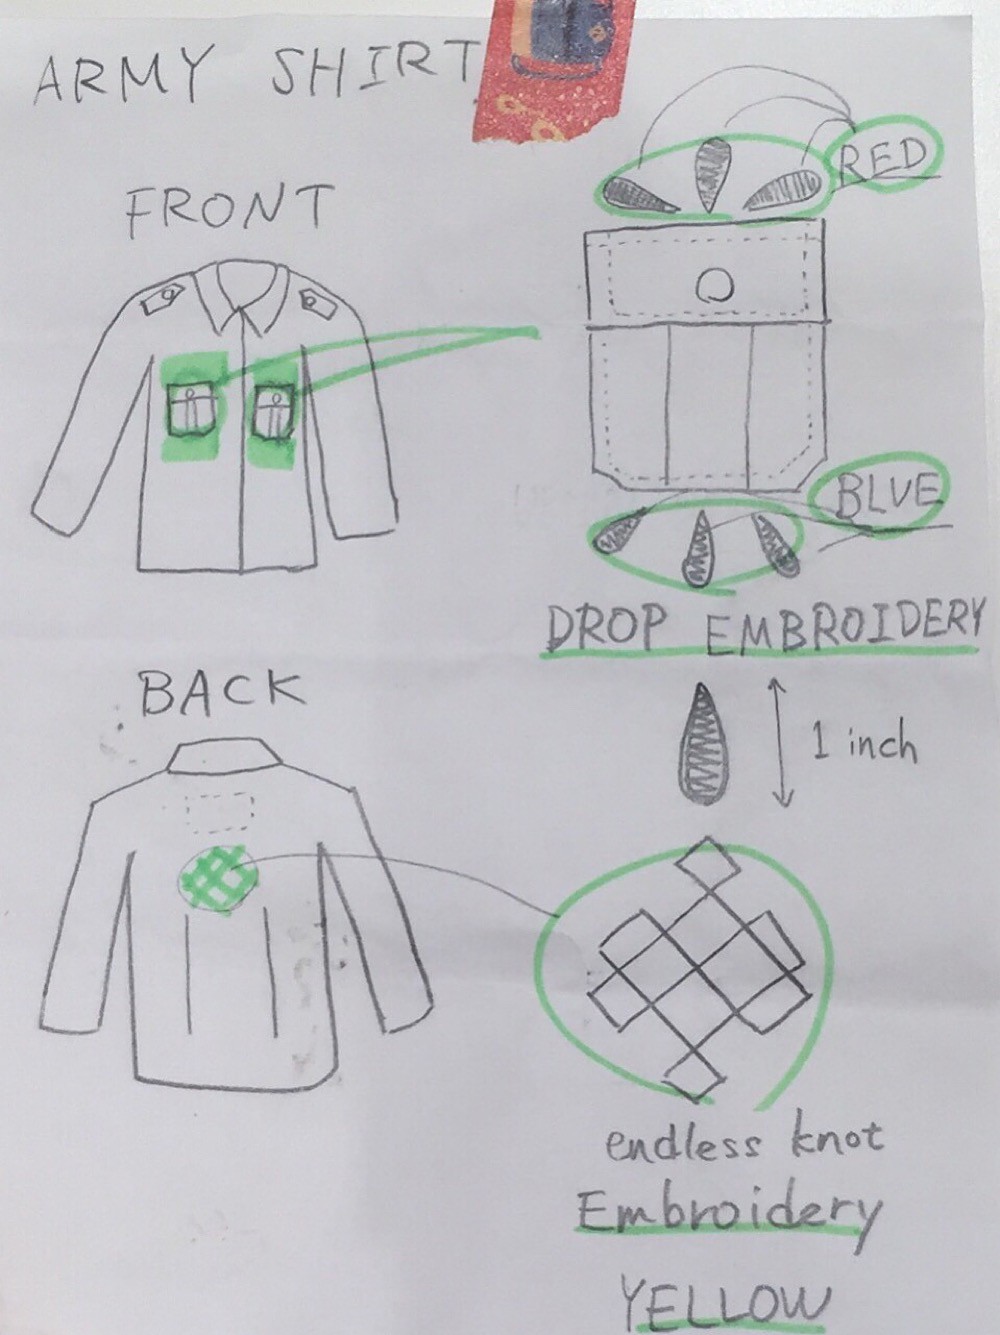 ARMY SHIRT
FRONT
RED
BLUE
DROP EMBROIDERY
1 inch
BACK
endless knot
Embroidery
YELLOW